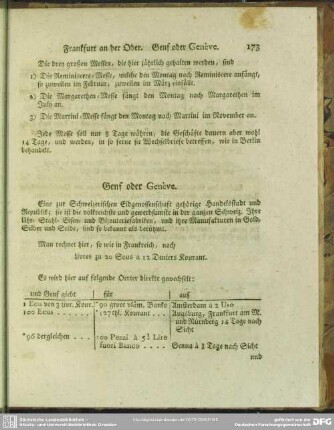 Frankfurt an der Oder. Genf oder Genève. 173
Die drey großen Messen, die hier jährlich gehalten werden, sind
1) Die Reminiscere-Messe, welche den Montag nach Reminiscere anfängt,
so zuweilen im Februar, zuweilen im März einfällt.
2) Die Margarethen-Messe fängt den Montag nach Margarethen im
July an.
3) Die Martini-Messe fängt den Montag nach Martini im November an.
Jede Messe soll nur 8 Tage währen, die Geschäfte dauern aber wohl
14 Tage, und werden, in so ferne sie Wechselbriefe betreffen, wie in Berlin
behandelt.
Genf oder Genève.
Eine zur Schweizerischen Eidgenossenschaft gehörige Handelsstadt und
Republik; sie ist die volkreichste und gewerbsamste in der ganzen Schweiz. Ihre
Uhr- Stahl- Eisen- und Bijouteriefabriken, und ihre Manufakturen in Gold,
Silber und Seide, sind so bekannt als berühmt.
Man rechnet hier, so wie in Frankreich, nach
Livres zu 20 Sous à 12 Deniers Kourant.
Es wird hier auf folgende Oerter direkte gewechselt:
und Genf giebt für auf
1 Ecu von 3 Livr. Kour. *90 groot vläm. Banko Amsterdam à 2 Uso
100 Ecus *127 thl. Kourant Augsburg, Frankfurt am M.
und Nürnberg 14 Tage nach
Sicht
*96 dergleichen 100 Pezzi à 5¾ Lire
fuori Banco Genua à 8 Tage nach Sicht
und